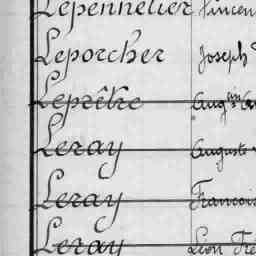 Lepennetier Vincen
Leporcher Joseph
Leprêtre Augtin
Leray Auguste
Leray Francois
Leray Léon Fré